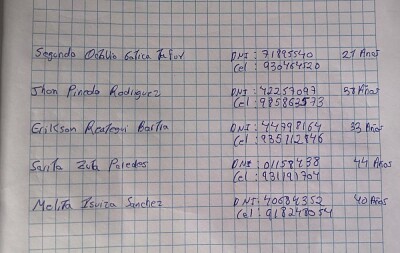 Segundo Octavio Gatica Tafur DNI : 71895540 21 Años
Cel : 930464520
Jhon Pinedo Rodriguez DNI : 42257097 38 Años
Cel : 985862573
Erikson Reategui Bartra DNI : 44798164 33 Años
Cel : 935112846
Sarita Zuta Paredes DNI : 01158438 44 Años
Cel : 931191704
Melita Isuiza Sanchez DNI : 40684352 40 Años
Cel : 918248054